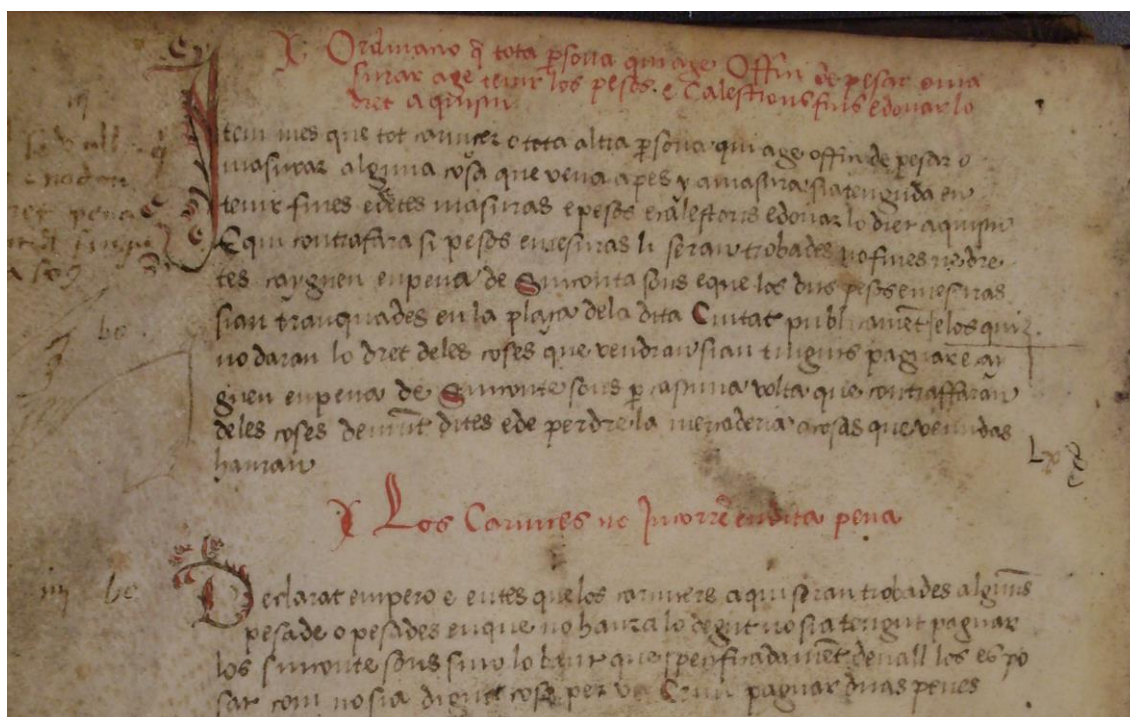 Ordinatio q̄ tota p̄sona qui age Offici de pesar o ma
surar age tenir los pesos e Calestons fins e donar lo
dret aquism
Item mes que tot carnicer o tota altra p̄sona qui age offici de pesar o
masurar alguna cosa que vena a pes y a masura sia tenguda en
tenir fines e dretes masuras e pesos e calestons e donar lo dret aquism
E qui contrafara si pesos e mesuras li seran trobades no fines ne dre
tes cayguen en pena de Sinconta sous e que los dits pesos e mesuras
sian tranquades en la plaça de la dita Ciutat publicament e los qui
no daran lo dret de les coses que vendran sian tinguts paguar e cai
guen en pena de Sinconte sous p̄ cascuna volta que contraffaran
de les coses demūt dites e de perdre la mercaderia o cosas que venudas
hauran
Lx
Los Carnicers no Incorrē en dita pena
Declarat empero e entes que los carnicers a qui seran trobades algunes
pesade o pesades en que no haura lo degut no sia tengut paguar
los sinconte sous sino lo bant que specificadament devall los es po
sat com no sia digne cosa per un Crim paguar duas penes